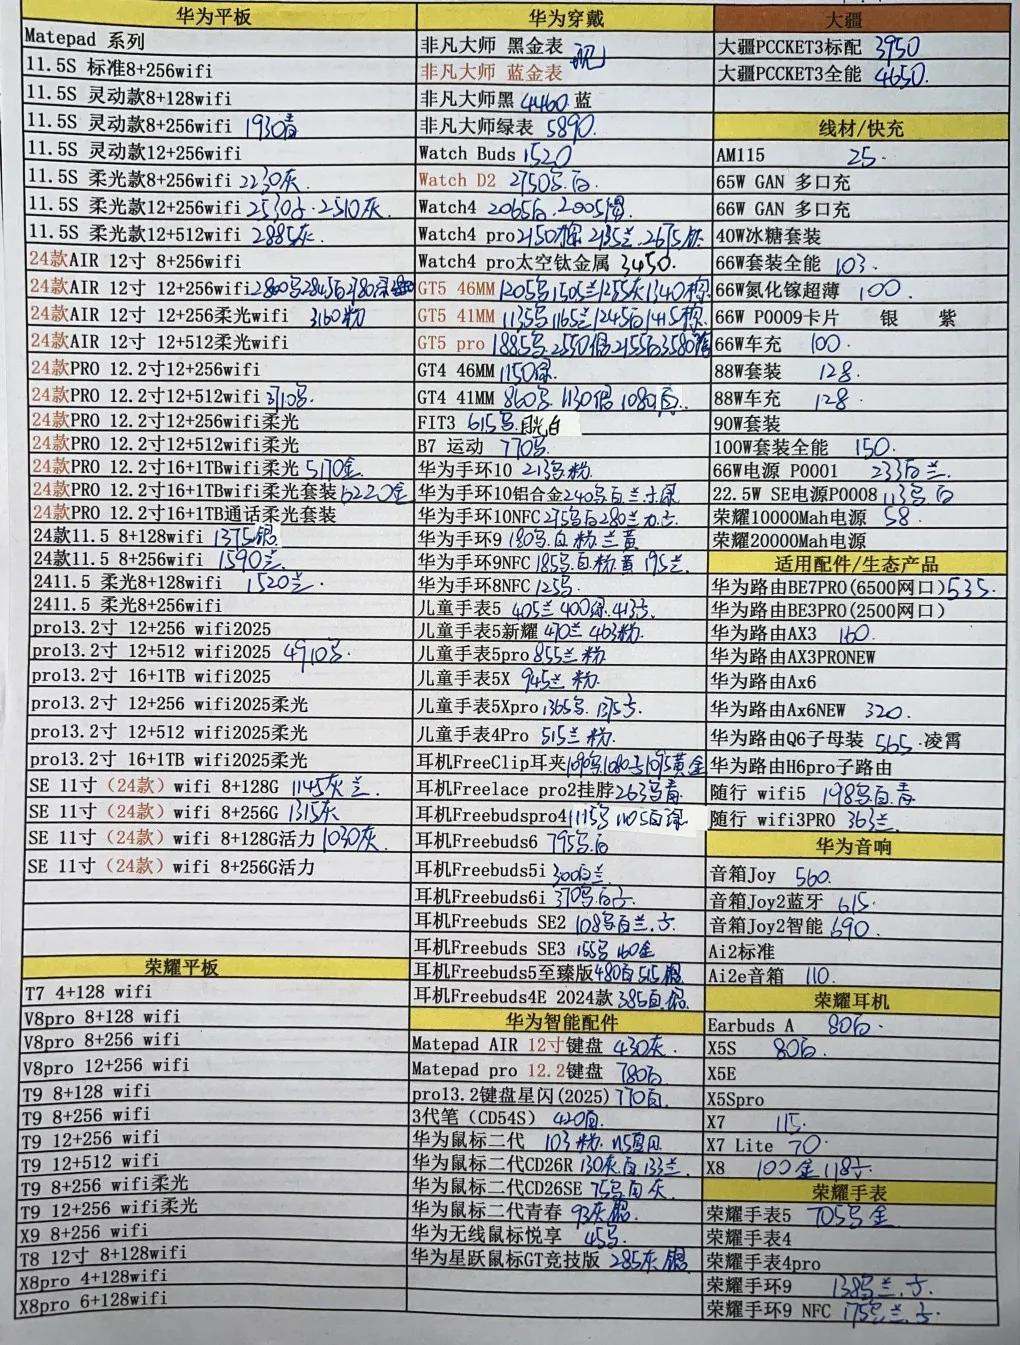 华为平板
Matepad 系列
11.5S 标准8+256wifi
11.5S 灵动款8+128wifi
11.5S 灵动款8+256wifi 1930青
11.5S 灵动款12+256wifi
11.5S 柔光款8+256wifi 2230灰.
11.5S 柔光款12+256wifi 2530 . 2510灰.
11.5S 柔光款12+512wifi 2885灰.
24款AIR 12寸 8+256wifi
24款AIR 12寸 12+256wifi
24款AIR 12寸 12+256柔光wifi 3160粉
24款AIR 12寸 12+512柔光wifi
24款PRO 12.2寸12+256wifi
24款PRO 12.2寸12+512wifi
24款PRO 12.2寸12+256wifi柔光
24款PRO 12.2寸12+512wifi柔光
24款PRO 12.2寸16+1TBwifi柔光 5170金.
24款PRO 12.2寸16+1TBwifi柔光套装 6220金
24款PRO 12.2寸16+1TB通话柔光套装
24款11.5 8+128wifi 1375银.
24款11.5 8+256wifi 1590兰.
2411.5 柔光8+128wifi 1520兰.
2411.5 柔光8+256wifi
pro13.2寸 12+256 wifi2025
pro13.2寸 12+512 wifi2025 4910
pro13.2寸 16+1TB wifi2025
pro13.2寸 12+256 wifi2025柔光
pro13.2寸 12+512 wifi2025柔光
pro13.2寸 16+1TB wifi2025柔光
SE 11寸（24款）wifi 8+128G 1145灰 兰.
SE 11寸（24款）wifi 8+256G 1315灰
SE 11寸（24款）wifi 8+128G活力 1030灰.
SE 11寸（24款）wifi 8+256G活力
荣耀平板
T7 4+128 wifi
V8pro 8+128 wifi
V8pro 8+256 wifi
V8pro 12+256 wifi
T9 8+128 wifi
T9 8+256 wifi
T9 12+256 wifi
T9 12+512 wifi
T9 8+256 wifi柔光
T9 12+256 wifi柔光
X9 8+256 wifi
T8 12寸 8+128wifi
X8pro 4+128wifi
X8pro 6+128wifi
华为穿戴
非凡大师 黑金表
非凡大师 蓝金表
非凡大师黑 4460 蓝
非凡大师绿表 5890.
Watch Buds 1520
Watch D2 2750
Watch4 2065
Watch4 pro 2150
Watch4 pro太空钛金属 3450.
GT5 46MM
GT5 41MM
GT5 pro
GT4 46MM 1150绿.
GT4 41MM
FIT3 615 月光白
B7 运动 770
华为手环10 213 粉.
华为手环10铝合金
华为手环10NFC
华为手环9 180 白 粉 兰黄
华为手环9NFC 185 白.粉.黄 195兰.
华为手环8NFC 125
儿童手表5 405兰 400绿
儿童手表5新耀 470兰 463粉.
儿童手表5pro 855兰 粉
儿童手表5X 945兰 粉.
儿童手表5Xpro
儿童手表4Pro 515兰 粉.
耳机FreeClip耳夹
耳机Freelace pro2挂脖 263
耳机Freebudspro4
耳机Freebuds6 795
耳机Freebuds5i 300白兰.
耳机Freebuds6i
耳机Freebuds SE2
耳机Freebuds SE3 155 160金
耳机Freebuds5至臻版 480白 515银
耳机Freebuds4E 2024款 385白.银.
华为智能配件
Matepad AIR 12寸键盘 430灰.
Matepad pro 12.2键盘 780白
pro13.2键盘星闪(2025) 770白.
3代笔（CD54S） 420白.
华为鼠标二代 103粉.
华为鼠标二代CD26R 130灰.白 133兰.
华为鼠标二代CD26SE 75 白 灰.
华为鼠标二代青春
华为无线鼠标悦享 45
华为星跃鼠标GT竞技版 285灰 银
大疆
大疆PCCKET3标配 3950
大疆PCCKET3全能 4650.
线材/快充
AM115 25.
65W GAN 多口充
66W GAN 多口充
40W冰糖套装
66W套装全能 103.
66W氮化镓超薄 100.
66W P0009卡片 银 紫
66W车充 100.
88W套装 128.
88W车充 128.
90W套装
100W套装全能 150.
66W电源 P0001 233白兰.
22.5W SE电源P0008
荣耀10000Mah电源 58.
荣耀20000Mah电源
适用配件/生态产品
华为路由BE7PRO(6500网口) 535.
华为路由BE3PRO(2500网口)
华为路由AX3 160.
华为路由AX3PRONEW
华为路由Ax6
华为路由Ax6NEW 320.
华为路由Q6子母装 565.凌霄
华为路由H6pro子路由
随行 wifi5
随行 wifi3PRO 363兰.
华为音响
音箱Joy 560.
音箱Joy2蓝牙 615.
音箱Joy2智能 690.
Ai2标准
Ai2e音箱 110.
荣耀耳机
Earbuds A 80白.
X5S 80白.
X5E
X5Spro
X7 115.
X7 Lite 70.
X8 100金
荣耀手表
荣耀手表5 705 金
荣耀手表4
荣耀手表4pro
荣耀手环9
荣耀手环9 NFC